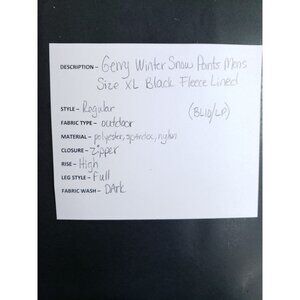 DESCRIPTION – Gerry Winter Snow Pants Mens
Size XL Black Fleece Lined
STYLE – Regular (BL10/LP)
FABRIC TYPE – outdoor
MATERIAL – polyester, spandex, nylon
CLOSURE – Zipper
RISE – High
LEG STYLE – Full
FABRIC WASH – DArk